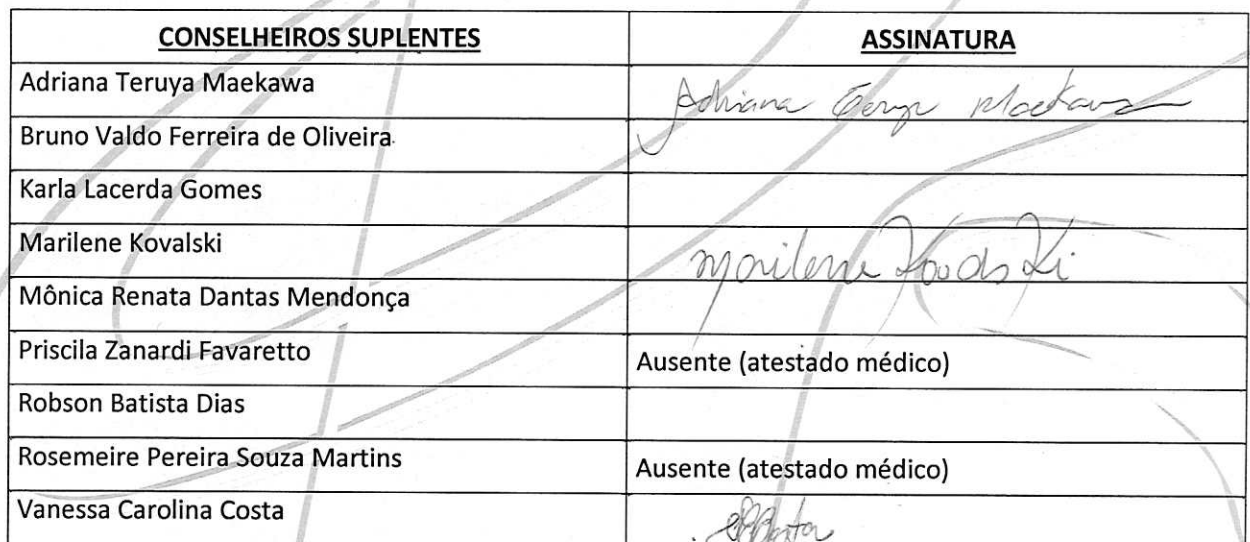 CONSELHEIROS SUPLENTES ASSINATURA
Adriana Teruya Maekawa Adriana Teruya Maekawa
Bruno Valdo Ferreira de Oliveira
Karla Lacerda Gomes
Marilene Kovalski Marilene Kovalski
Mônica Renata Dantas Mendonça
Priscila Zanardi Favaretto Ausente (atestado médico)
Robson Batista Dias
Rosemeire Pereira Souza Martins Ausente (atestado médico)
Vanessa Carolina Costa